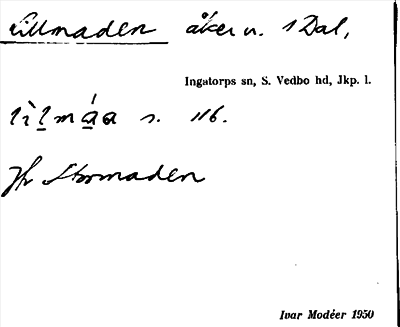 Lillmaden åker n. 1 Dal,
Ingatorps sn, S. Vedbo hd, Jkp. l.
s. 116.
Jfr Stormaden
Ivar Modéer 1950